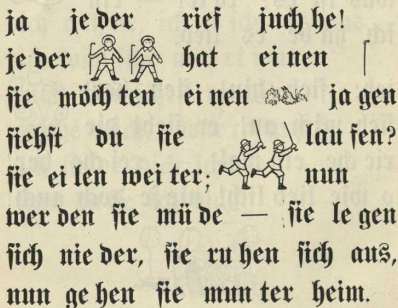 ja je der rief juch he!
je der hat ei nen
sie möch ten ei nen ja gen
siehst du sie lau fen?
sie ei len wei ter; nun
wer den sie mü de — sie le gen
sich nie der, sie ru hen sich aus,
nun ge hen sie mun ter heim.